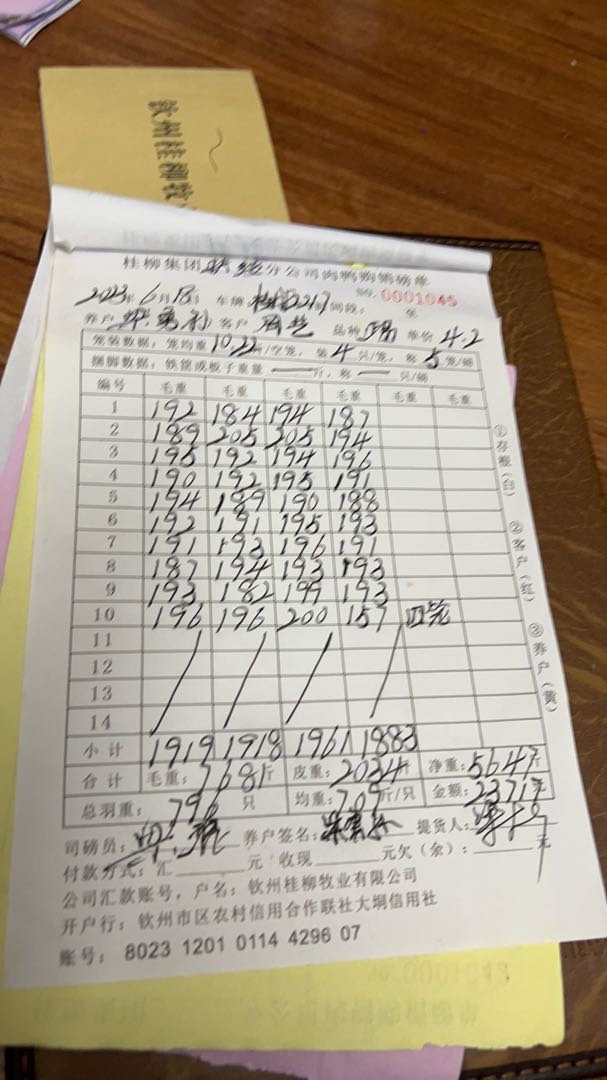 钦州桂柳牧
桂柳集团 分公司肉鸭购销磅单
2023年6月18日 车辆 2217 时间段: 至 No. 0001045
养户 客户 品种 单价 4.2
笼装数据: 笼均重 10.22斤/空笼, 装 4 只/笼, 称 5 笼/磅
捆脚数据: 铁筐或板子重量 — 斤, 称 — 只/磅
编号 毛重 毛重 毛重 毛重 毛重 毛重
1 192 184 194 187
2 189 205 205 194
3 195 192 194 196
4 190 192 195 191
5 194 189 190 188
6 192 191 195 193
7 191 193 196 191
8 187 194 193 193
9 193 182 199 193
10 196 196 200 157 四笼
11
12
13
14
小计 1919 1918 1961 1883
合计 毛重: 7681斤 皮重: 2034斤 净重: 5647斤
总羽重: 796 只 均重: 7.09斤/只 金额: 23717元
司磅员: 养户签名: 提货人:
付款方式: 汇 元 收现 元欠(余): 元
公司汇款账号, 户名: 钦州桂柳牧业有限公司
开户行: 钦州市区农村信用合作联社大垌信用社
账号: 8023 1201 0114 4296 07
①存根(白) ②客户(红) ③养户(黄)